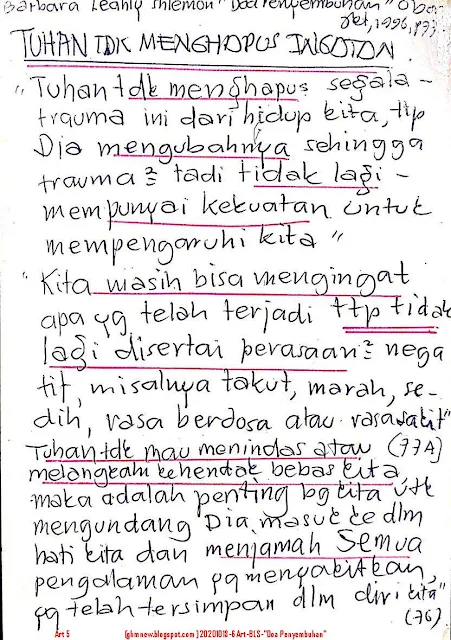 Barbara Leahy Shlemon "Doa Penyembuhan" Obor
Jkt, 1996, p73
TUHAN TDK MENGHAPUS INGATAN.
"Tuhan tdk menghapus segala -
trauma ini dari hidup kita, ttp
Dia mengubahnya sehingga
trauma² tadi tidak lagi -
mempunyai kekuatan untuk
mempengaruhi kita"
"Kita masih bisa mengingat
apa yg telah terjadi ttp tidak
lagi disertai perasaan² nega
tif, misalnya takut, marah, se-
dih, rasa berdosa atau rasa sakit"
Tuhan tdk mau menindas atau (77A)
melangkahi kehendak bebas kita,
maka adalah penting bg kita utk
mengundang Dia masuk ke dlm
hati kita dan menjamah Semua
pengalaman yg menyakitkan
yg telah tersimpan dlm diri kita"
(76)
Art 5 (ghmnew.blogspot.com) 20201013-6 Art-BLS-"Doa Penyembuhan"